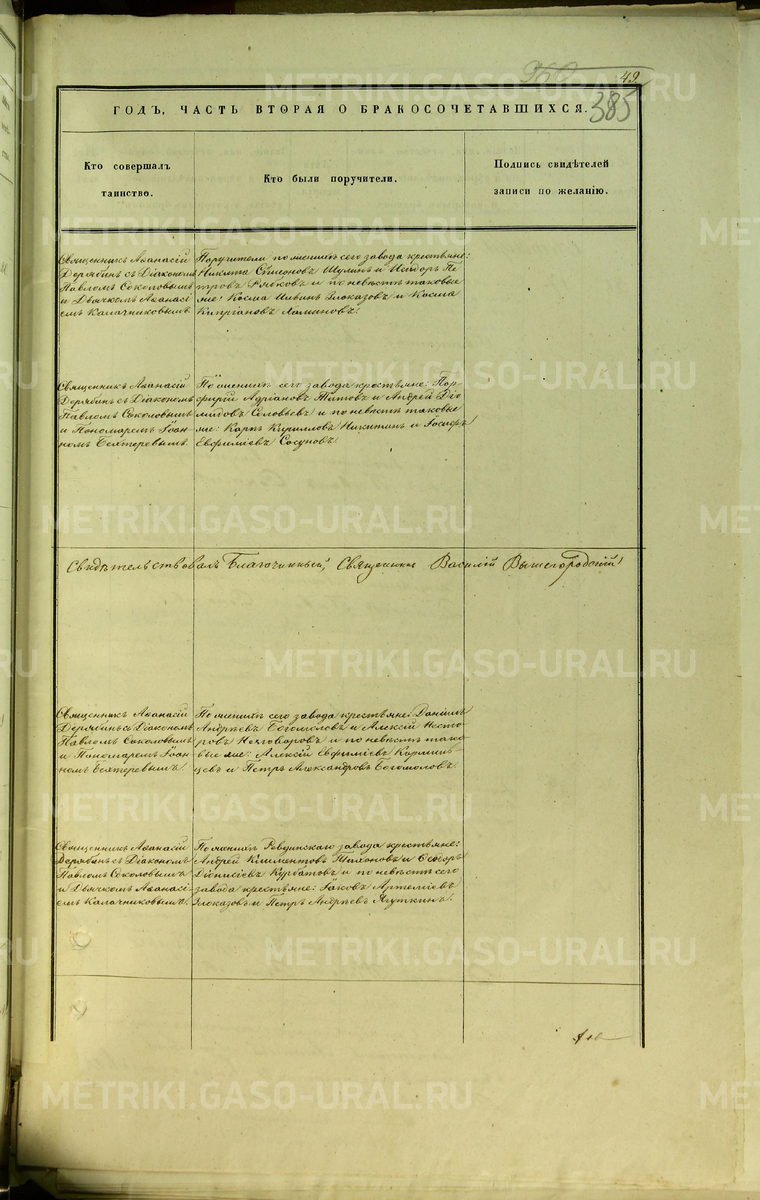 49
385
ГОДЪ, ЧАСТЬ ВТОРАЯ О БРАКОСОЧЕТАВШИХСЯ.
Кто совершалъ
таинство.
Кто были поручители.
Подпись свидѣтелей
записи по желанію.
Священникъ Аѳанасій
Дерябинъ съ Діакономъ
Павломъ Соколовымъ
и Дьячкомъ Аѳанасі
емъ Калачниковымъ.
Поручители по женихѣ сего завода крестьяне:
Никита Симеоновъ Шулинъ и Исидоръ Пе
тровъ Рябковъ и по невѣстѣ таковые
же: Косма Ильинъ Глоказовъ и Косма
Кипріановъ
Священникъ Аѳанасій
Дерябинъ съ Діакономъ
Павломъ Соколовымъ
и Пономаремъ Іоан
номъ Бехтеревымъ.
По женихѣ сего завода крестьяне: Пор
фирій Адріановъ Титовъ и Андрей Діо
мидовъ Соловьевъ и по невѣстѣ таковые
же: Карпъ Кирилловъ Никитинъ и Іосифъ
Евфиміевъ Сосуновъ
Свидѣтельствовалъ Благочинный, Священникъ Василій Вышегородскій
Священникъ Аѳанасій
Дерябинъ съ Діакономъ
Павломъ Соколовымъ
и Пономаремъ Іоан
номъ Бехтеревымъ.
По женихѣ сего завода крестьяне: Даніилъ
Андреевъ Богомоловъ и Алексій Несто
ровъ Незговоровъ и по невѣстѣ тако
вые же: Алексій Евфиміевъ Кормиль
цевъ и Петръ Александровъ Богомоловъ.
Священникъ Аѳанасій
Дерябинъ съ Діакономъ
Павломъ Соколовымъ
и Дьячкомъ Аѳанасі
емъ Калачниковымъ.
По женихѣ Ревдинскаго завода крестьяне:
Андрей Климентовъ Тихоновъ и Ѳеодоръ
Діонисіевъ Курбатовъ и по невѣстѣ сего
завода крестьяне: Іаковъ Артеміевъ
Глоказовъ и Петръ Андреевъ Ягуткинъ.
METRIKI.GASO-URAL.RU